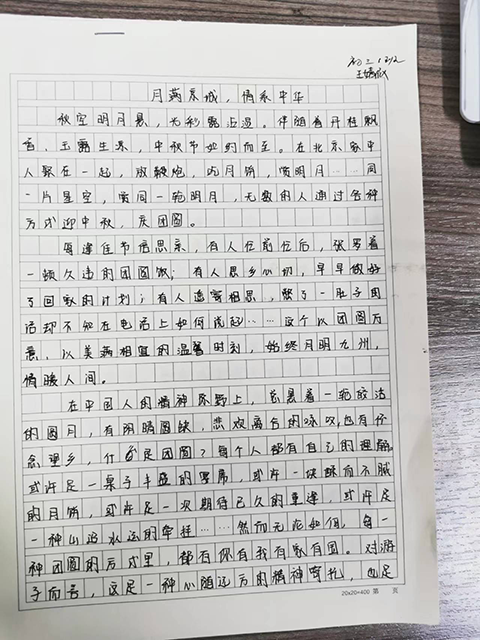 初三、1班
王嫣然
月满京城，情系中华
秋空明月悬，光彩露沾湿。伴随着丹桂飘
香，玉露生寒，中秋节如约而至。在北京家中
人聚在一起，放鞭炮，吃月饼，赏明月……同
一片星空，赏同一轮明月，无数的人通过各种
方式迎中秋，庆团圆。
每逢佳节倍思亲，有人忙前忙后，张罗着
一顿久违的团圆饭；有人思乡心切，早早做好
了回家的计划；有人遥寄相思，憋了一肚子的
话却不知在电话上如何说起……这个以团圆为
意，以美满相宜的温馨时刻，始终月明九州，
情暖人间。
在中国人的精神原野上，总悬着一轮皎洁
的圆月，有阴晴圆缺，悲欢离合的咏叹也有怀
念望乡，什么是团圆？每个人都有自己的理解。
或许是一桌子丰盛的宴席，或许一块酥而不腻
的月饼，或许是一次期待已久的重逢，或许是
一种山迢水远的牵挂……然而无论如何，每一
种团圆的方式里，都有你有我有家有国。对游
子而言，这是一种心随远方的精神寄托，也是
20×20=400 第 页